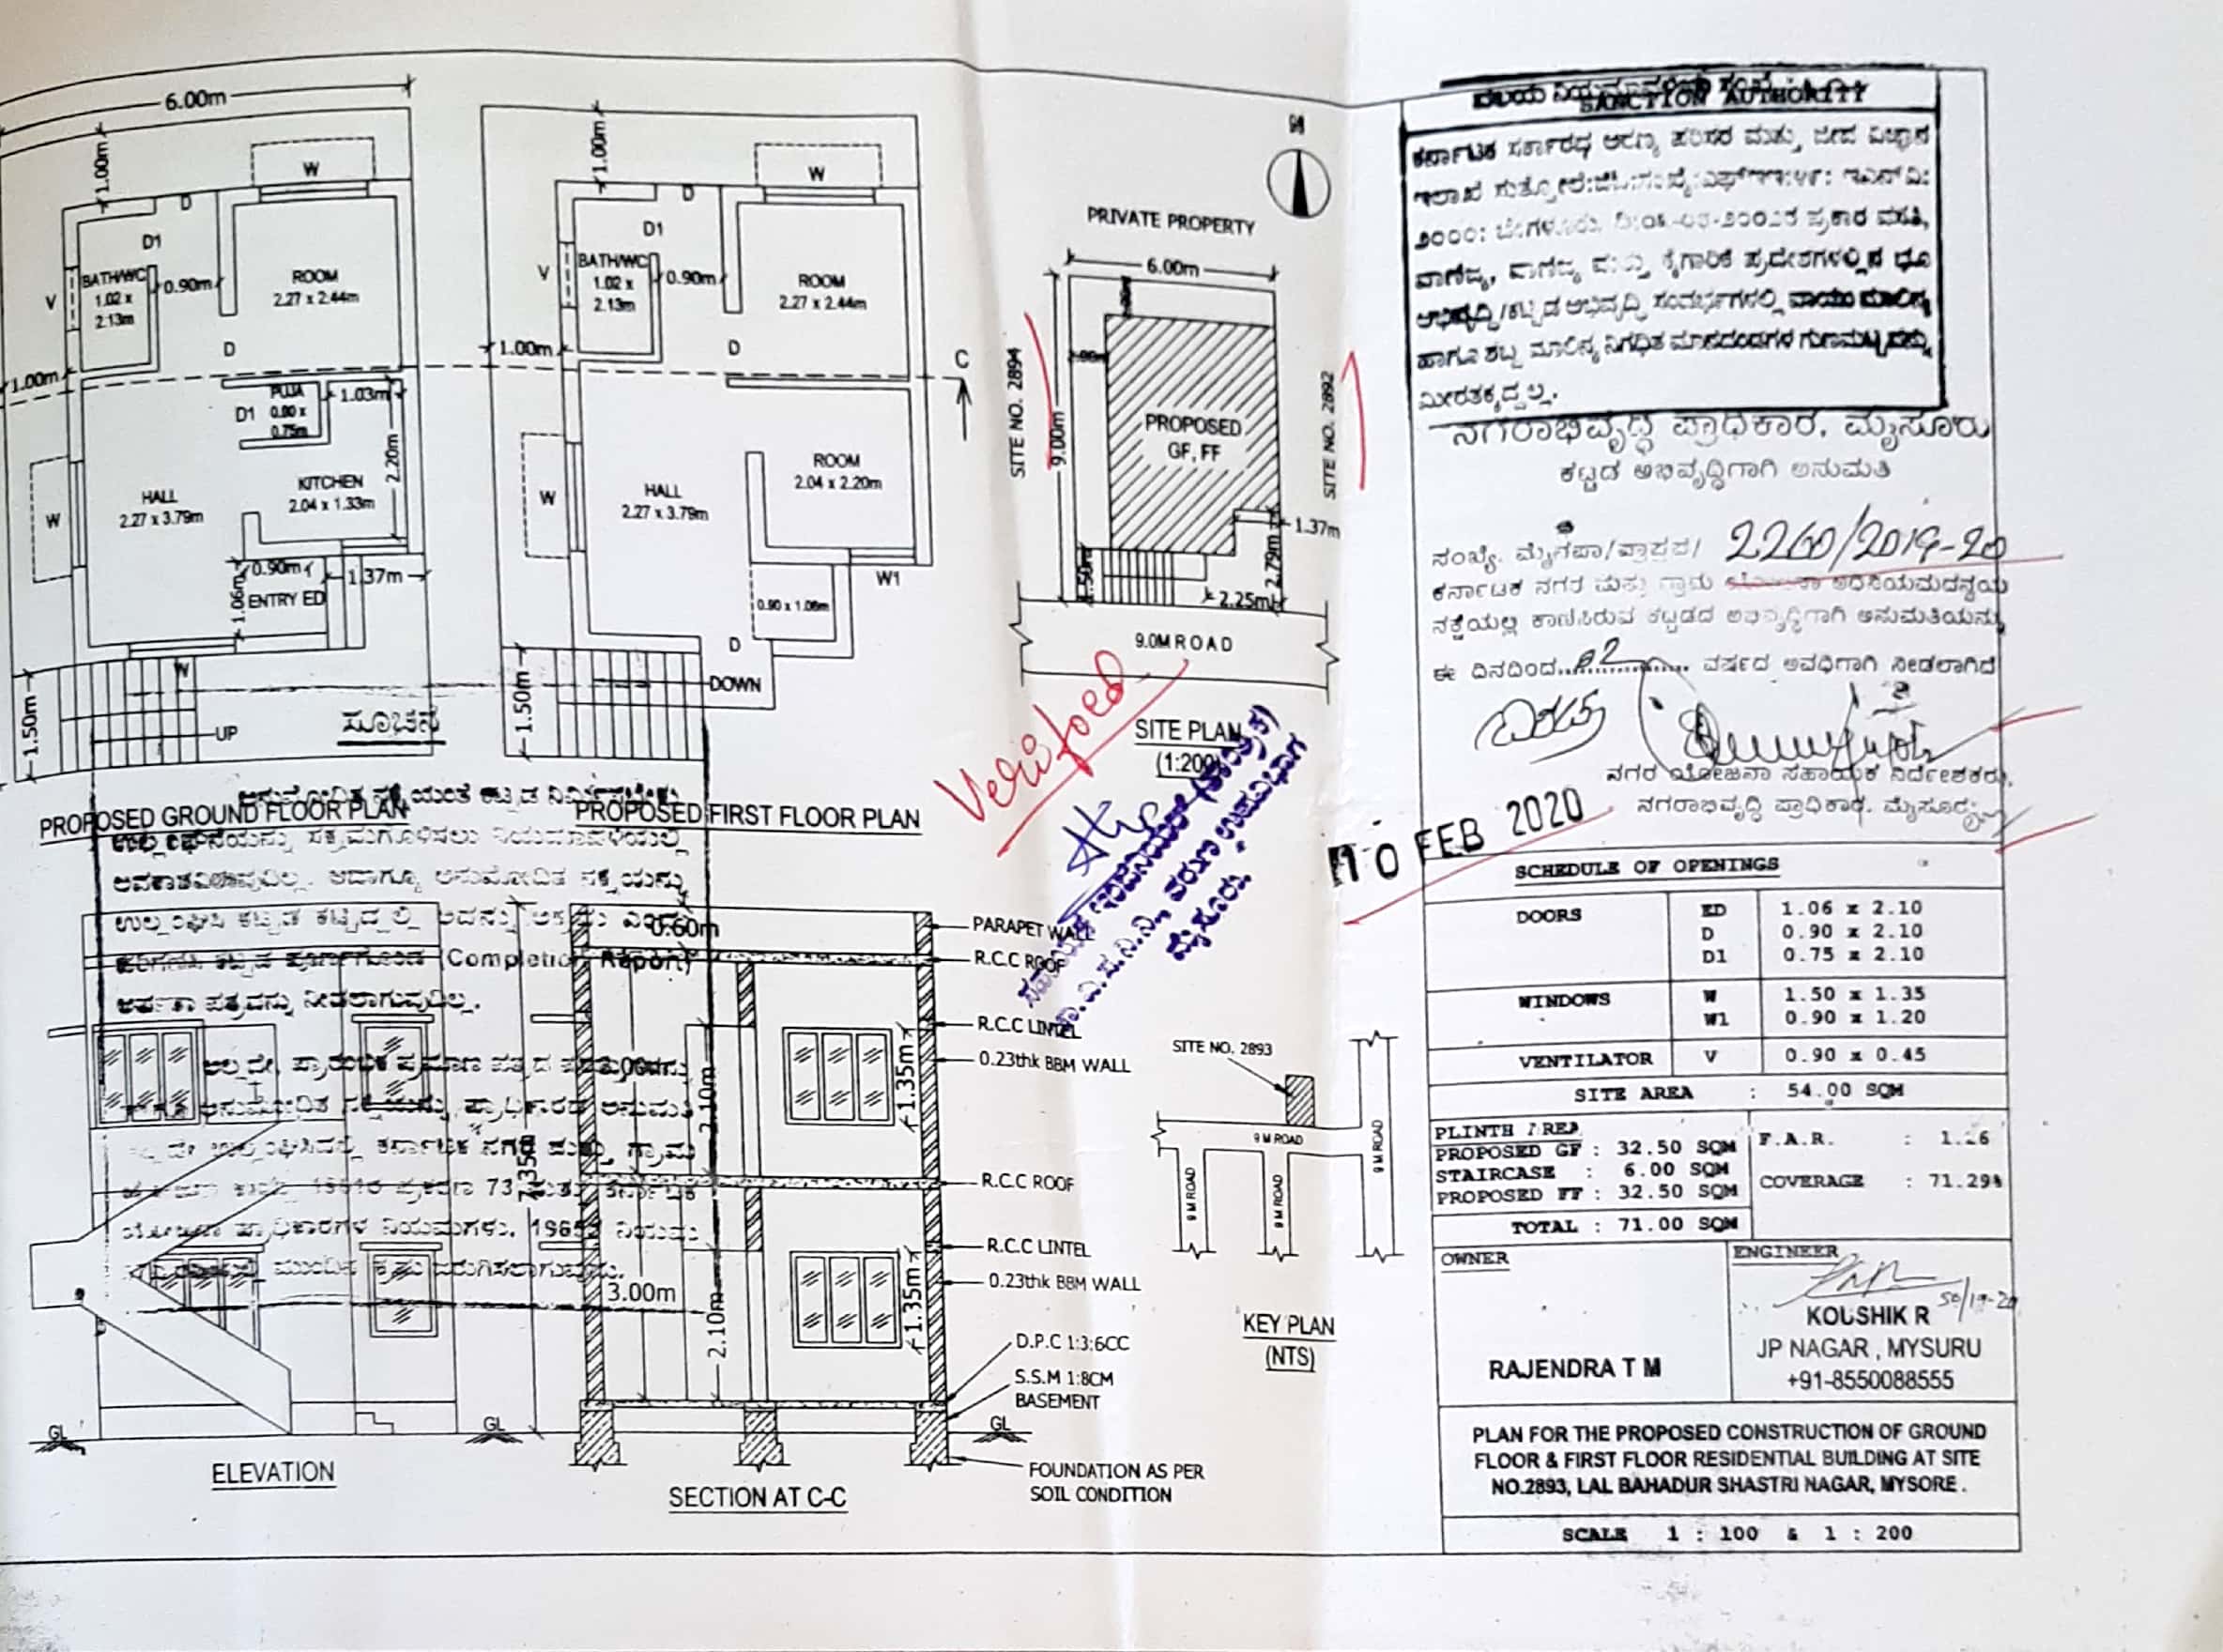 6.00m
1.00m
W
D
D1
BATH/WC
1.02 x
2.13m
0.90m
V
ROOM
2.27 x 2.44m
D
1.00m
PUJA
0.80 x
0.75m
D1
1.03m
2.20m
HALL
2.27 x 3.79m
KITCHEN
2.04 x 1.33m
W
0.90m
1.37m
1.06m
ENTRY ED
W
1.50m
UP
ಸೂಚನೆ
PROPOSED GROUND FLOOR PLAN
1.00m
W
D
D1
BATH/WC
1.02 x
2.13m
0.90m
V
ROOM
2.27 x 2.44m
D
1.00m
C
HALL
2.27 x 3.79m
ROOM
2.04 x 2.20m
W
W1
0.90 x 1.06m
D
DOWN
1.50m
PROPOSED FIRST FLOOR PLAN
ಉಲ್ಲಂಘನೆಯನ್ನು ಸಕ್ರಮಗೊಳಿಸಲು ನಿಯಮಾವಳಿಯಲ್ಲಿ
ಅವಕಾಶವಿರುವುದಿಲ್ಲ. ಅದಾಗ್ಯೂ ಅನುಮೋದಿತ ನಕ್ಷೆಯನ್ನು
ಉಲ್ಲಂಘಿಸಿ ಕಟ್ಟಡ ಕಟ್ಟಿದ್ದಲ್ಲಿ ಅದನ್ನು ಅಕ್ರಮ
(Completion Report)
ಅರ್ಹತಾ ಪತ್ರವನ್ನು ನೀಡಲಾಗುವುದಿಲ್ಲ.
ಅಲ್ಲದೇ, ಪ್ರಾರಂಭಿಕ ಪ್ರಮಾಣ ಪತ್ರದ
ಅನುಮೋದಿತ ನಕ್ಷೆಯನ್ನು ಪ್ರಾಧಿಕಾರದ ಅನುಮತಿ
ಉಲ್ಲಂಘಿಸಿದಲ್ಲಿ ಕರ್ನಾಟಕ ನಗರ ಮತ್ತು ಗ್ರಾಮ
1961ರ ಪ್ರಕರಣ 73 ಮತ್ತು ಕರ್ನಾಟಕ
ಯೋಜನಾ ಪ್ರಾಧಿಕಾರಗಳ ನಿಯಮಗಳು, 1965ರ ನಿಯಮ
ಮುಂದಿನ ಕ್ರಮ ಜರುಗಿಸಲಾಗುವುದು.
0.60m
3.00m
2.10m
1.35m
7.35m
3.00m
2.10m
1.35m
PARAPET WALL
R.C.C ROOF
R.C.C LINTEL
0.23thk BBM WALL
R.C.C ROOF
R.C.C LINTEL
0.23thk BBM WALL
D.P.C 1:3:6CC
S.S.M 1:8CM
BASEMENT
GL
GL
GL
FOUNDATION AS PER
SOIL CONDITION
ELEVATION
SECTION AT C-C
PRIVATE PROPERTY
6.00m
SITE NO. 2894
9.00m
PROPOSED
GF, FF
SITE NO. 2892
1.37m
2.79m
2.25m
1.50m
9.0M ROAD
SITE PLAN
(1:200)
Verified
ಮೈಸೂರು.
10 FEB 2020
SITE NO. 2893
9 M ROAD
9 M ROAD
9 M ROAD
9 M ROAD
KEY PLAN
(NTS)
SANCTION AUTHORITY
ಕರ್ನಾಟಕ ಸರ್ಕಾರದ ಅರಣ್ಯ ಪರಿಸರ ಮತ್ತು ಜೀವ ವಿಜ್ಞಾನ
ಪ್ರಕಾರ ವಸತಿ,
ವಾಣಿಜ್ಯ, ವಾಣಿಜ್ಯ ಮತ್ತು ಕೈಗಾರಿಕೆ ಪ್ರದೇಶಗಳಲ್ಲಿನ ಭೂ
ಅಭಿವೃದ್ಧಿ/ಕಟ್ಟಡ ಅಭಿವೃದ್ಧಿ ಸಂದರ್ಭಗಳಲ್ಲಿ ವಾಯು ಮಾಲಿನ್ಯ
ಹಾಗೂ ಶಬ್ದ ಮಾಲಿನ್ಯ ನಿಗಧಿತ ಮಾನದಂಡಗಳ ಗುಣಮಟ್ಟವನ್ನು
ಮೀರತಕ್ಕದ್ದಲ್ಲ.
ನಗರಾಭಿವೃದ್ಧಿ ಪ್ರಾಧಿಕಾರ, ಮೈಸೂರು
ಕಟ್ಟಡ ಅಭಿವೃದ್ಧಿಗಾಗಿ ಅನುಮತಿ
ಸಂಖ್ಯೆ. ಮೈನಪ್ರಾ/ 2260/2019-20
ಕರ್ನಾಟಕ ನಗರ ಮತ್ತು ಗ್ರಾಮ ಯೋಜನಾ ಅಧಿನಿಯಮದನ್ವಯ
ನಕ್ಷೆಯಲ್ಲಿ ಕಾಣಿಸಿರುವ ಕಟ್ಟಡದ ಅಭಿವೃದ್ಧಿಗಾಗಿ ಅನುಮತಿಯನ್ನು
ಈ ದಿನದಿಂದ....02.... ವರ್ಷದ ಅವಧಿಗಾಗಿ ನೀಡಲಾಗಿದೆ
ನಗರ ಯೋಜನಾ ಸಹಾಯಕ ನಿರ್ದೇಶಕರು,
ನಗರಾಭಿವೃದ್ಧಿ ಪ್ರಾಧಿಕಾರ, ಮೈಸೂರು
SCHEDULE OF OPENINGS
DOORS ED 1.06 x 2.10
D 0.90 x 2.10
D1 0.75 x 2.10
WINDOWS W 1.50 x 1.35
W1 0.90 x 1.20
VENTILATOR V 0.90 x 0.45
SITE AREA : 54.00 SQM
PLINTH AREA
PROPOSED GF : 32.50 SQM
STAIRCASE : 6.00 SQM
PROPOSED FF : 32.50 SQM
TOTAL : 71.00 SQM
F.A.R. : 1.26
COVERAGE : 71.29%
OWNER
RAJENDRA T M
ENGINEER
50/19-20
KOUSHIK R
JP NAGAR, MYSURU
+91-8550088555
PLAN FOR THE PROPOSED CONSTRUCTION OF GROUND
FLOOR & FIRST FLOOR RESIDENTIAL BUILDING AT SITE
NO.2893, LAL BAHADUR SHASTRI NAGAR, MYSORE.
SCALE 1 : 100 & 1 : 200